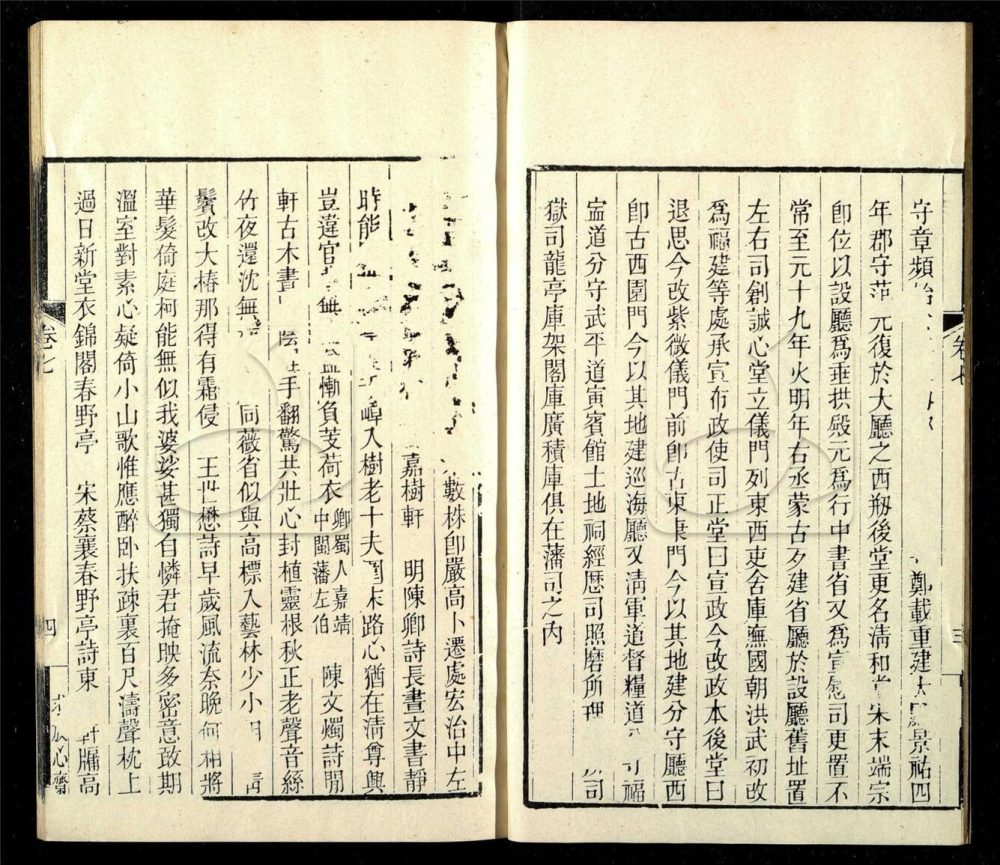 守章頻
鄭載重建大廳景祐四
年郡守范亢復於大廳之西剏後堂更名清和堂宋末端宗
卽位以設廳爲垂拱殿元爲行中書省又爲宣慰司更置不
常至元十九年火明年右丞蒙古歹建省廳於設廳舊址置
左右司創誠心堂立儀門列東西吏舍庫廡國朝洪武初改
爲福建等處承宣布政使司正堂曰宣政今改政本後堂曰
退思今改紫微儀門前卽古東康門今以其地建分守廳西
卽古西園門今以其地建巡海廳又清軍道督糧道
福
寍道分守武平道寅賓館土地祠經歷司照磨所理
司
獄司龍亭庫架閣庫廣積庫俱在藩司之內
卷七
三
數株卽嚴高卜遷處宏治中左
嘉樹軒　明陳卿詩長晝文書靜
時能
入樹老十夫圍末路心猶在清尊興
豈違官
無
慚負芰荷衣
卿蜀人嘉靖
中閩藩左伯
陳文燭詩閒
軒古木書
陰
手翻驚共壯心封植靈根秋正老聲音絲
竹夜還沈無
同薇省似與高標入藝林少小
鬢改大椿那得有霜侵　王世懋詩早歲風流奈晚何相將
華髮倚庭柯能無似我婆娑甚獨自憐君掩映多密意敢期
溫室對素心疑倚小山歌惟應醉臥扶疎裏百尺濤聲枕上
過日新堂衣錦閣春野亭　宋蔡襄春野亭詩東
牖高
卷七
四
心齋